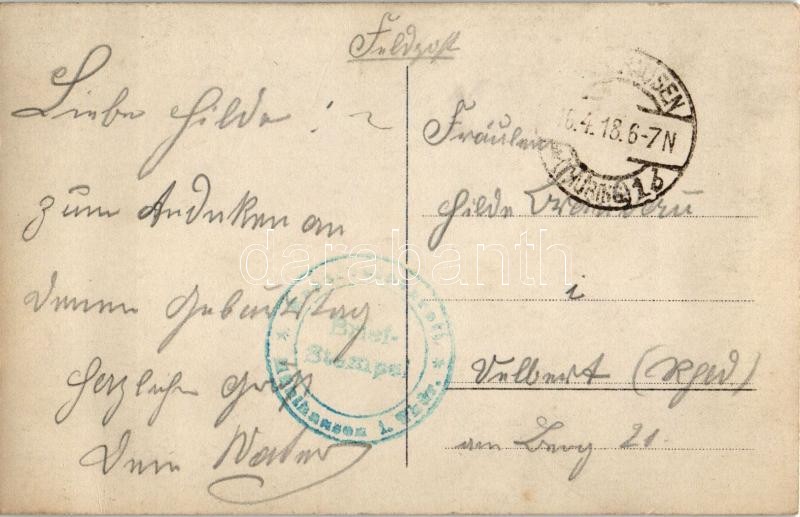 Feldpost
Liebe Hilde! ~
zum Andenken an
deinen Geburtstag
herzlichen Gruß
Dein
Fräulein
Hilde
i
Velbert (Rhld)
am Berg 21.
HAUSEN
16.4.18.6-7N
(THÜRING) 1b
Brief-
Stempel
Mühlhausen i. Th.
darabanth